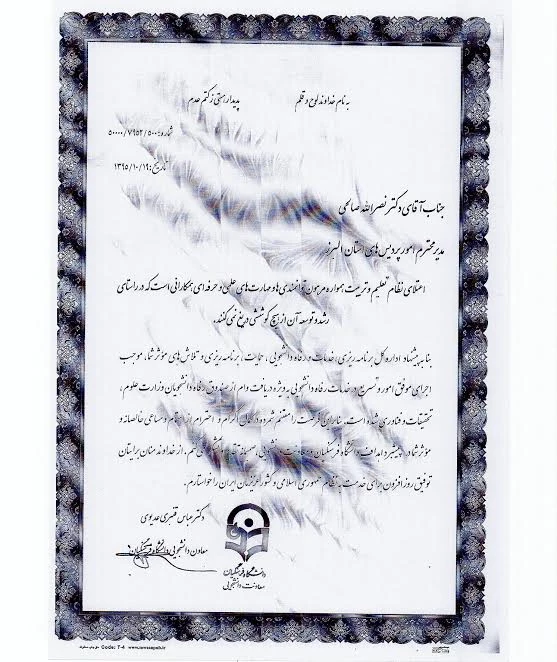 به نام خداوند لوح و قلم
پدیدار هستی ز کتم عدم
شماره: ۵۰۰۰۰/۷۹۵۲/۵۰۰
تاریخ: ۱۳۹۵/۱۰/۱۹
جناب آقای دکتر نصرالله صالحی
مدیر محترم امور پردیس های استان البرز
اعتلای نظام تعلیم و تربیت همواره مرهون توانمندی ها و مهارت های علمی و حرفه ای همکارانی است که در راستای
رشد و توسعه آن از هیچ کوششی دریغ نمی کنند.
بنا به پیشنهاد اداره کل برنامه ریزی، خدمات و رفاه دانشجویی، حمایت، برنامه ریزی و تلاش های مؤثر شما، موجب
اجرای موفق امور و تسریع در خدمات رفاه دانشجویی به ویژه دریافت وام از صندوق رفاه دانشجویان وزارت علوم،
تحقیقات و فناوری شده است. بنابراین فرصت را مغتنم شمرده و کمال اکرام و احترام از اهتمام و مساعی خالصانه و
مؤثر شما در پیشبرد اهداف دانشگاه فرهنگیان و معاونت دانشجویی، صمیمانه تقدیر و تشکر می کنم. از خداوند منان برایتان
توفیق روزافزون برای خدمت به نظام جمهوری اسلامی و کشور عزیزمان ایران را خواستارم.
دکتر عباس قنبری عدیوی
معاون دانشجویی دانشگاه فرهنگیان
دانشگاه فرهنگیان
معاونت دانشجویی
Code: T-4